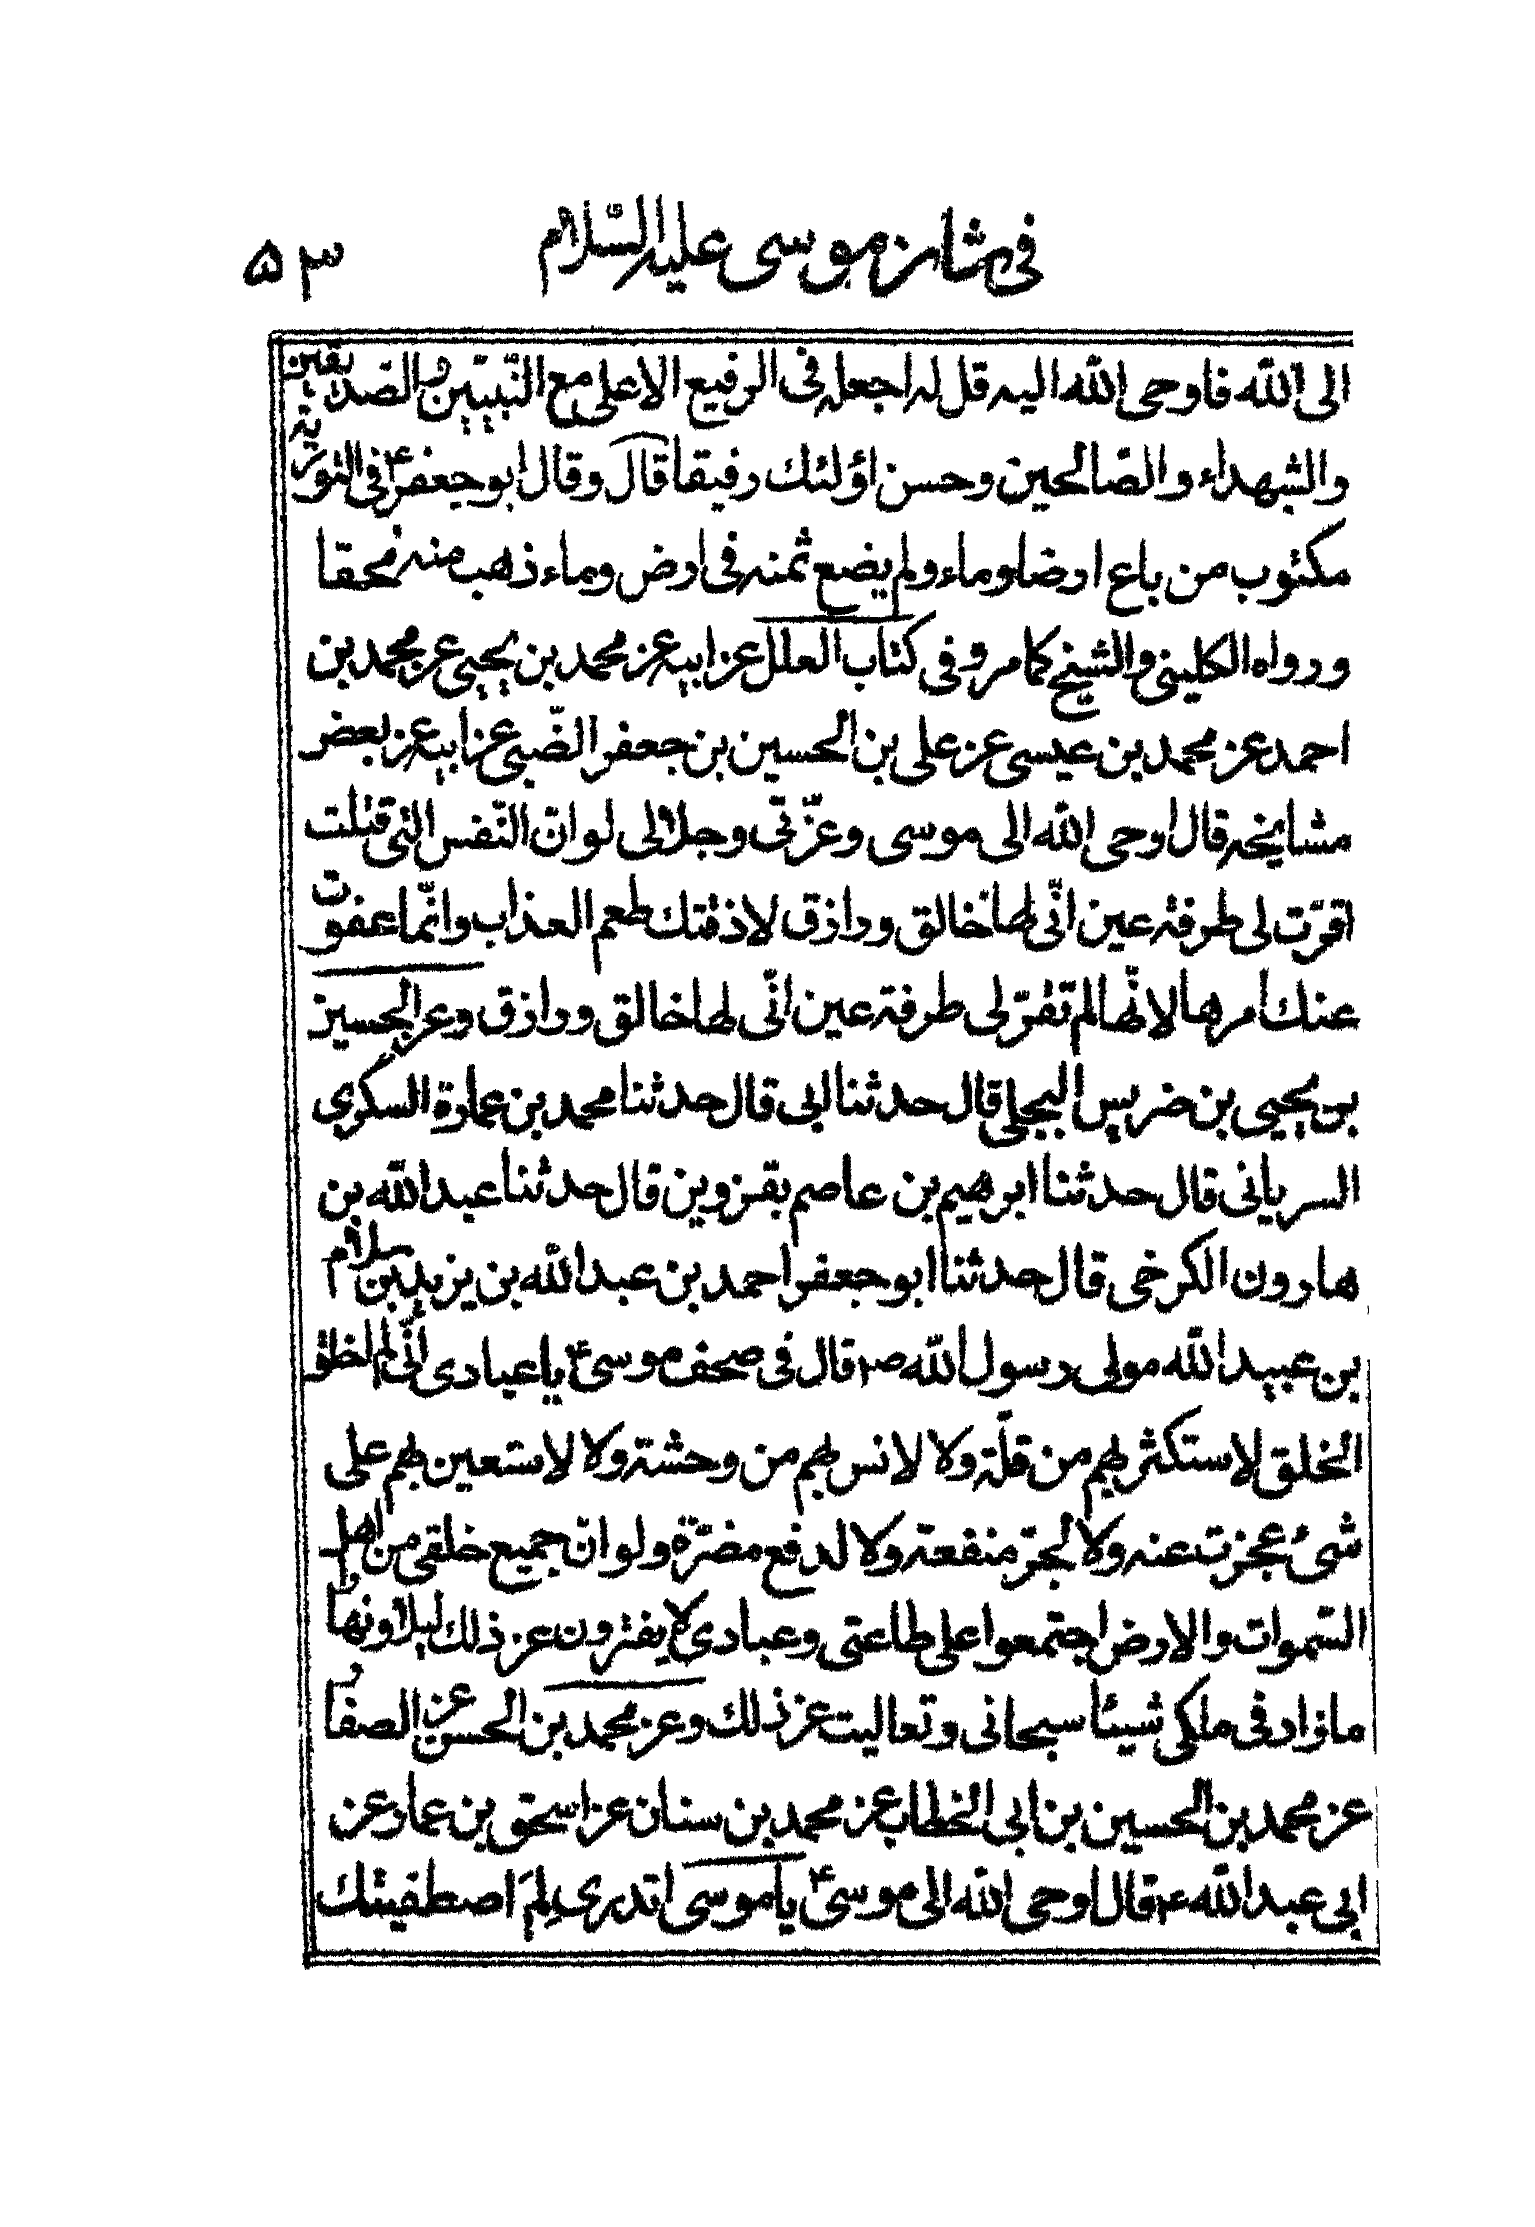 فی شان موسی علیه السّلام
۵۳
الی اللّه فاوحی اللّه الیه قل له اجعله فی الرفیع الاعلی مع النّبیّین والصّدیقین
والشهداء والصّالحین وحسن اولئك رفیقا قال وقال ابو جعفر ع فی التوریة
مکتوب من باع ارضا وماء ولم یضع ثمنه فی ارض وماء ذهب منه محقا
ورواه الکلینی والشیخ کما مر وفی کتاب العلل عن ابیه عن محمد بن یحیی عن محمد بن
احمد عن محمد بن عیسی عن علی بن الحسین بن جعفر الضّبی عن ابیه عن بعض
مشایخه قال اوحی اللّه الی موسی وعزّتی وجلالی لو انّ النّفس التی قتلت
اقرّت لی طرفة عین انّی لها خالق ورازق لاذقتك طعم العذاب وانّما عفوت
عنك امرها لانّها لم تقرّ لی طرفة عین انّی لها خالق ورازق وعن الحسین
بن یحیی بن ضریس البجلی قال حدثنا ابی قال حدثنا محمد بن عمارة السکری
السریانی قال حدثنا ابرهیم بن عاصم بقزوین قال حدثنا عبد اللّه بن
هارون الکرخی قال حدثنا ابو جعفر احمد بن عبد اللّه بن یزید بن سلام
بن عبید اللّه مولی رسول اللّه ص قال فی صحف موسی ع یا عبادی انّی لم اخلق
الخلق لاستکثر بهم من قلّة ولا لانس بهم من وحشة ولا لاستعین بهم علی
شیء عجزت عنه ولا لجرّ منفعة ولا لدفع مضرّة ولو انّ جمیع خلقی من اهل
السّموات والارض اجتمعوا علی طاعتی وعبادی لا یفترون عن ذلك لیلا ونهارا
ما زاد فی ملکی شیئا سبحانی وتعالیت عن ذلك وعن محمد بن الحسن عن الصفار
عن محمد بن الحسین بن ابی الخطاب عن محمد بن سنان عن اسحق بن عمار عن
ابی عبد اللّه ع قال اوحی اللّه الی موسی ع یا موسی اتدری لِمَ اصطفیتك